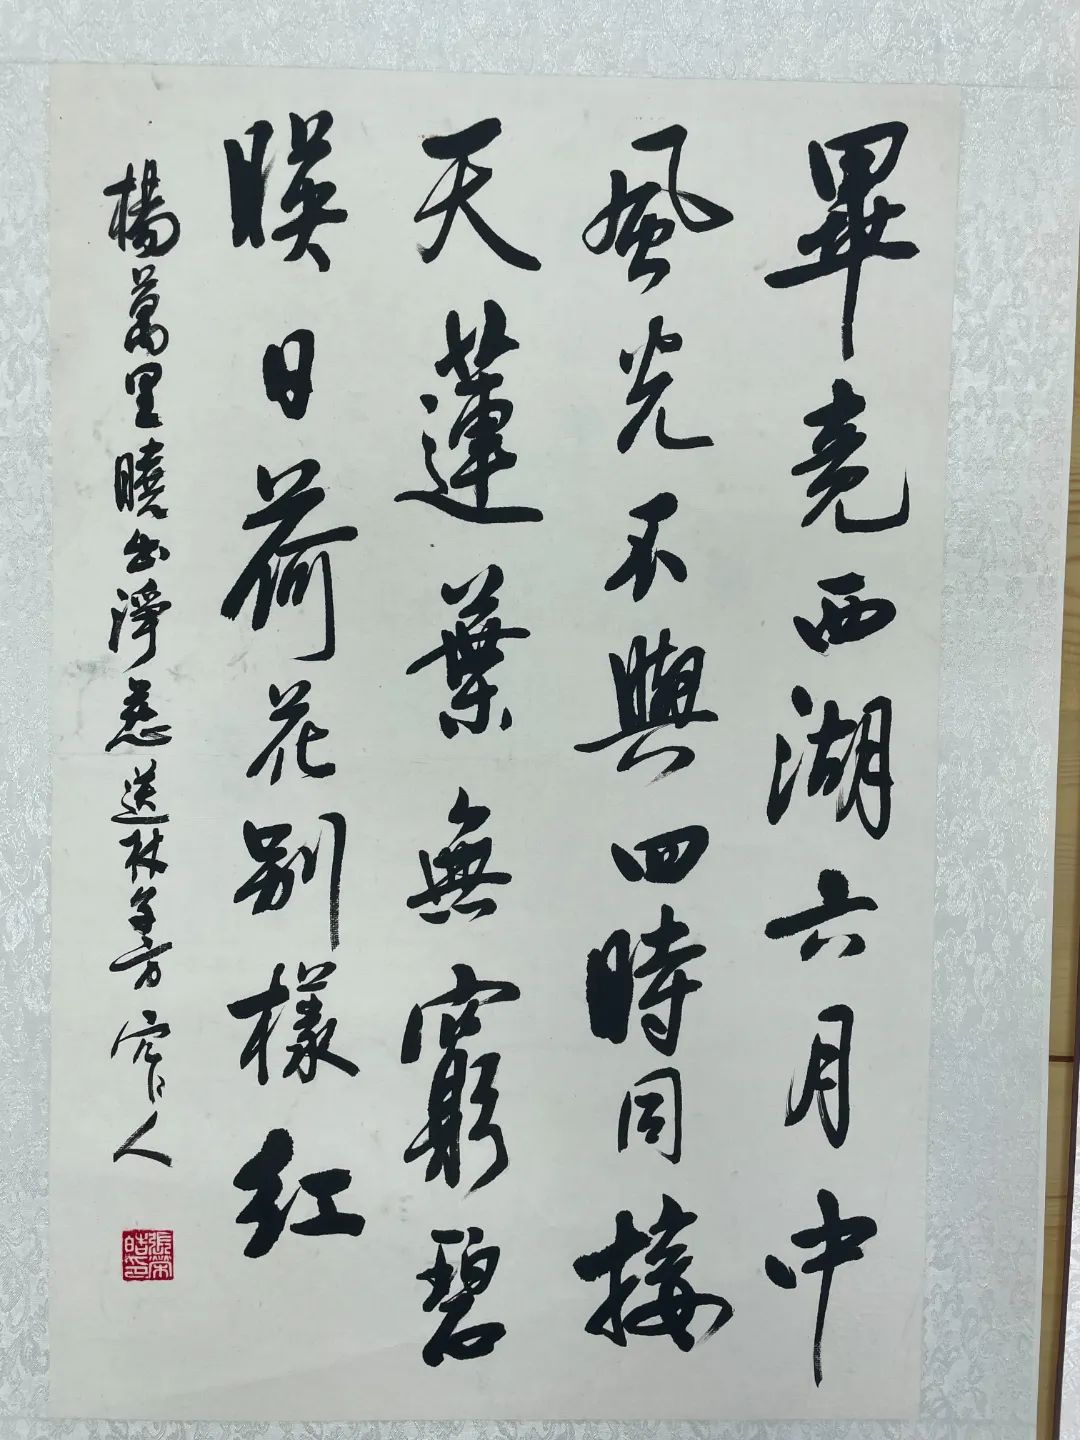 畢竟西湖六月中
風光不與四時同接
天蓮葉無窮碧
暎日荷花别樣紅
楊萬里曉出淨慈送林子方 官人
張榮皓印